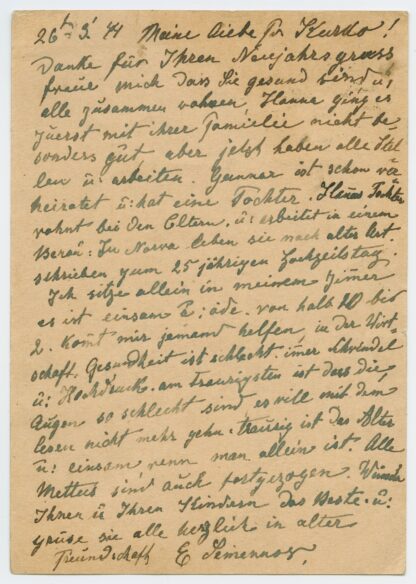 26t 3' 44 Meine liebe Fr Kurdo!
Danke für Ihren Neujahrsgruss
freue mich dass Sie gesund sind u,
alle zusammen wohnen, Hanna ging es
zuerst mit ihrer Familie nicht be
sonders gut, aber jetzt haben alle Stel
len u: arbeiten. Gunnar ist schon ver
heiratet u: hat eine Tochter. Tochter
wohnt bei den Eltern. u: arbeitet in einem
Beraü: In Narva leben sie nach alter Art.
schrieben zum 25 jährigen Hochzeitstag.
Ich sitze allein in meinem Zimer
es ist einsam u: öde. von halb 10 bis
2. komt mir jemand helfen, in der Wirt-
schaft. Gesundheit ist schlecht. imer Schwindel
u: Hochdruck. am traurigsten ist dass die
Augen so schlecht sind es will mit dem
lesen nicht mehr gehn. traurig ist das Alter
u: einsam wenn man allein ist. Alle
sind auch fortgezogen. Wünsche
Ihnen u Ihren Kindern das Beste. u:
grüße sie alle herzlich in alter
Freundschaft E Semennov.